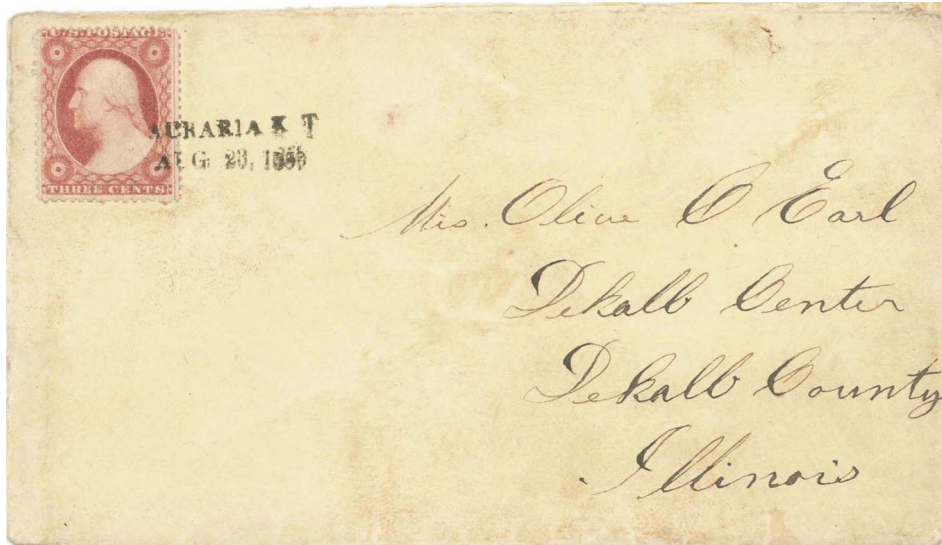 U.S. POSTAGE
THREE CENTS
AURARIA K T
AUG 23,
Mis. Olive C Earl
Dekalb Center
Dekalb County
Illinois